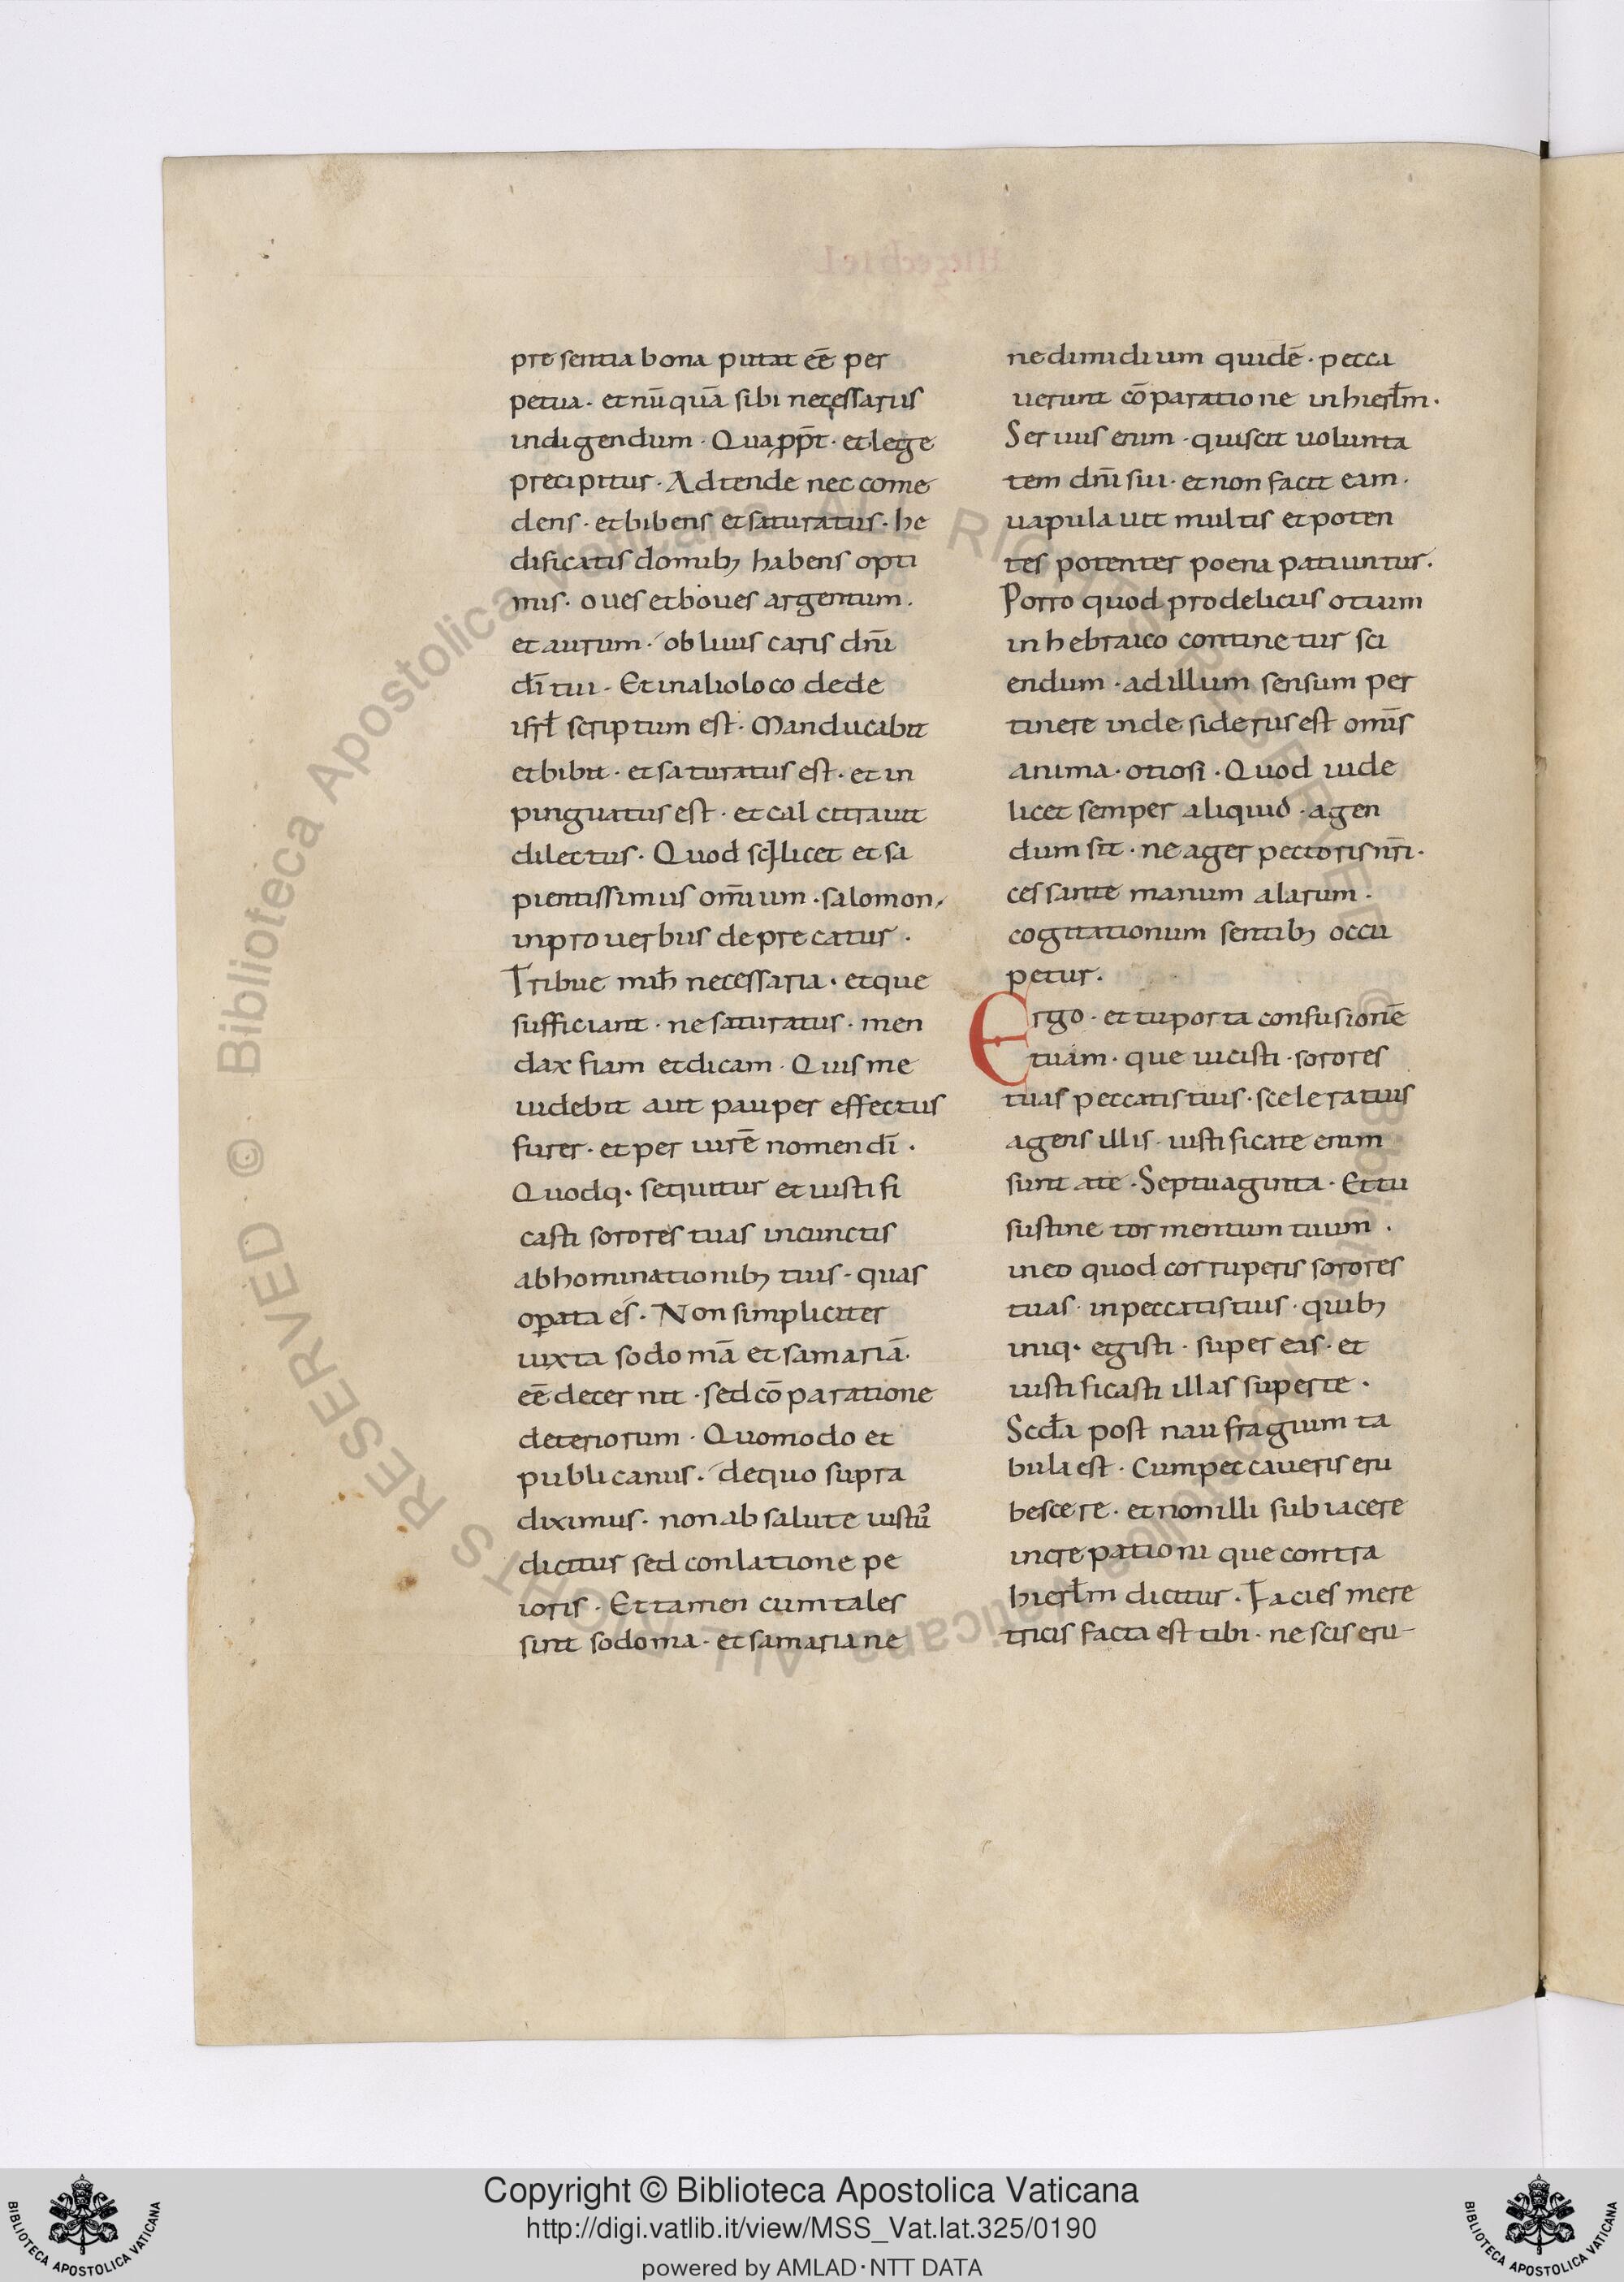 presentia bona putat eē per
petua · et nūquā sibi necessariis
indigendum · Quapp̄t · et lege
precipitur · Adtende ne comme
dens · et bibens et saturatus · he
dificatis domib; habens opti
mis · oues et boues argentum ·
et aurum · obliuiscaris dn̄i
dī tui · Et in alio loco de de
isrl̄ scriptum est · Manducabit
et bibit · et saturatus est · et in
pinguatus est · et calcitrauit
dilectus · Quod scilicet et sa
pientissimus om̄ium · salomon,
in prouerbiis deprecatur ·
Tribue mih̄ necessaria · et que
sufficiant · ne saturatus · men
dax fiam et dicam · Quis me
uidebit aut pauper effectus
furer · et periurē nomen dī ·
Quodq· sequitur et iustifi
casti sorores tuas in cunctis
abhominationib; tuis · quas
operata es · Non simpliciter
iuxta sodomā et samariā ·
eē decernit · sed cōparatione
deteriorum · Quomodo et
publicanus · de quo supra
diximus · non absalute iustū
dicitur sed conlatione pe
ioris · Et tamen cum tales
sint sodoma · et samaria ne
ne dimidium quidē · pecca
uerunt cōparatione in hierl̄m ·
Seruus enim · qui scit uolunta
tem dn̄i sui · et non facit eam ·
uapulauit multis et poten
tes potenter poena patiuntur ·
Porro quod pro deliciis otium
in hebraico continetur sci
endum · ad illum sensum per
tinere in desideriis est om̄is
anima · otiosi · Quod uide
licet semper aliquid · agen
dum sit · ne ager pectoris nr̄i ·
cessante manum alarum ·
cogitationum sentib; occu
petur ·
Ergo · et tu porta confusionē
tuam · que uicisti · sorores
tuas peccatis tuis · sceleratius
agens illis · iustificate enim
sunt a te · Septuaginta · Et tu
sustine tormentum tuum ·
in eo quod corruperis sorores
tuas · in peccatis tuis · quib;
iniq· egisti · super eas · et
iustificasti illas super te ·
Scd̄a post naufragium ta
bula est · Cum peccaueris eru
bescere · et non illi subiacere
increpationi que contra
hierl̄m dicitur · Facies mere
tricis facta est tibi · nescis eru-
Copyright © Biblioteca Apostolica Vaticana
http://digi.vatlib.it/view/MSS_Vat.lat.325/0190
powered by AMLAD·NTT DATA